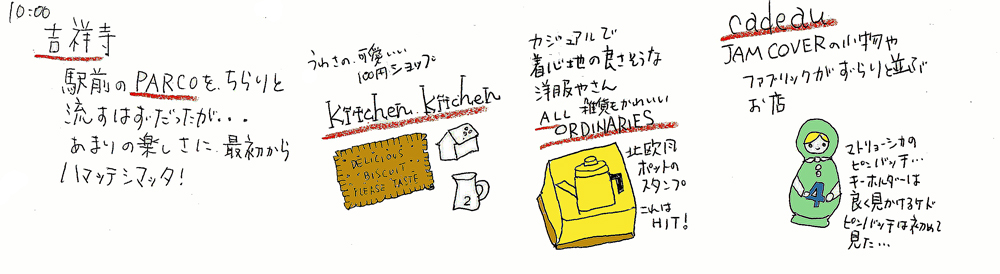 10:00
吉祥寺
駅前のPARCOを、ちらりと
流すはずだったが・・・
あまりの楽しさに、最初から
ハマッテシマッタ!
うわさの、可愛いい
100円ショップ
kitchen kitchen
DELICIOUS
BISCUIT
PLEASE TASTE
2
カジュアルで
着心地の良さそうな
洋服やさん
雑貨もかわいい
ALL ORDINARIES
北欧風
ポットの
スタンプ
これは
HIT!
cadeau
JAM COVERの小物や
ファブリックがずらりと並ぶ
お店
4
マトリョーシカの
ピンバッチ・・・
キーホルダーは
良く見かけるケド
ピンバッチは初めて
見た・・・